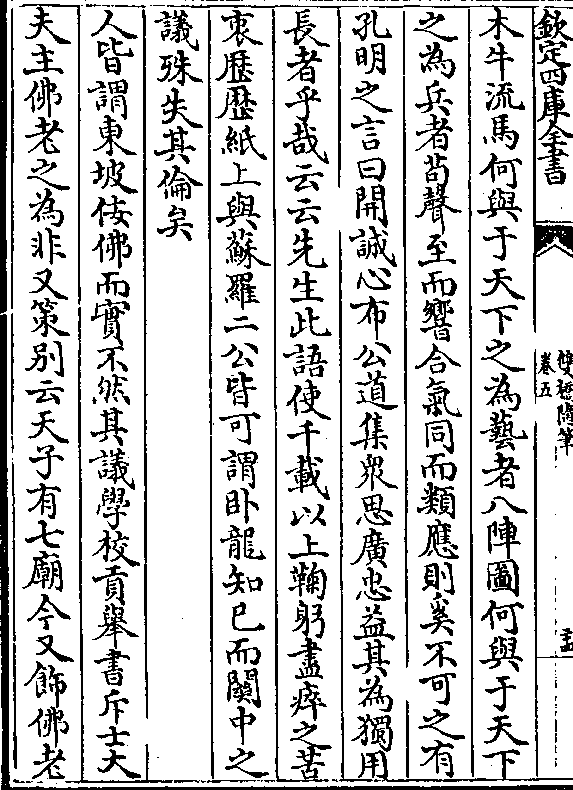 欽定四庫全書
雙橋隨筆
卷五
木牛流馬何與于天下之為藝者八陣圖何與于天下
之為兵者苟聲至而響合氣同而類應則奚不可之有
孔明之言曰開誠心布公道集衆思廣忠益其為獨用
長者乎哉云云先生此語使千載以上鞠躬盡瘁之苦
衷歴歴紙上與蘇羅二公皆可謂卧龍知已而闗中之
議殊失其倫矣
人皆謂東坡佞佛而實不然其議學校貢舉書斥士大
夫主佛老之為非又策别云天子有七廟今又飾佛老